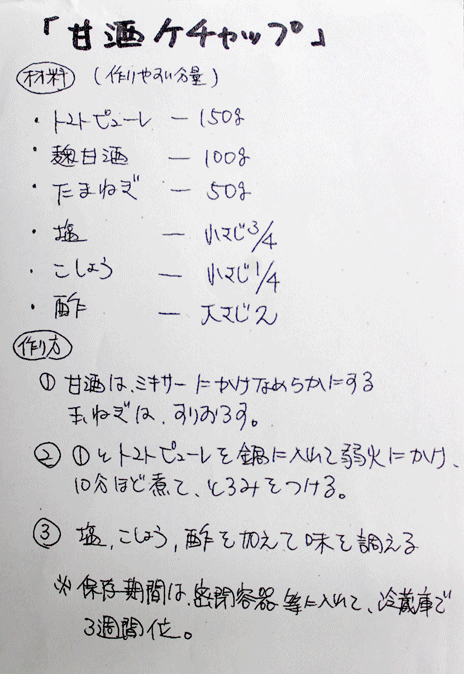 「甘酒ケチャップ」
材料 (作りやすい分量)
・トマトピューレ ― 150g
・麹甘酒 ― 100g
・たまねぎ ― 50g
・塩 ― 小さじ3/4
・こしょう ― 小さじ1/4
・酢 ― 大さじ2
作り方
① 甘酒は、ミキサーにかけなめらかにする
玉ねぎは、すりおろす。
② ①とトマトピューレを鍋に入れて弱火にかけ、
10分ほど煮て、とろみをつける。
③ 塩、こしょう、酢を加えて味を調える
※保存期間は、密閉容器等に入れて、冷蔵庫で
3週間位。